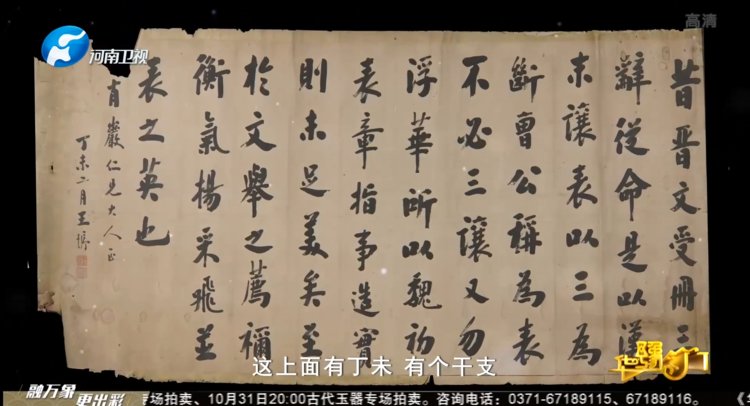 河南卫视
高清
昔晋文受冊三
辭從命是以漢
末讓表以三為
斷曹公稱為表
不必三讓又勿
浮華所以魏初
表章指事造實
則未足美矣至
於文舉之薦禰
衡氣揚采飛並
表之英也
肖巖仁兄大人正
丁未二月王
这上面有丁未 有个干支
华豫之门
融万象
更出彩
专场拍卖、10月31日20:00古代玉器专场拍卖。咨询电话：0371-67189115、67189116。 《